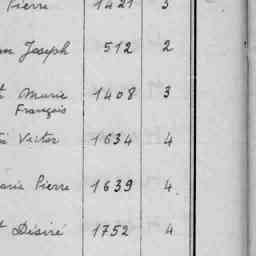 Pierre 1421 3
Joseph 512 2
Marie 1408 3
François
Victor 1634 4
Pierre 1639 4
Désiré 1752 4